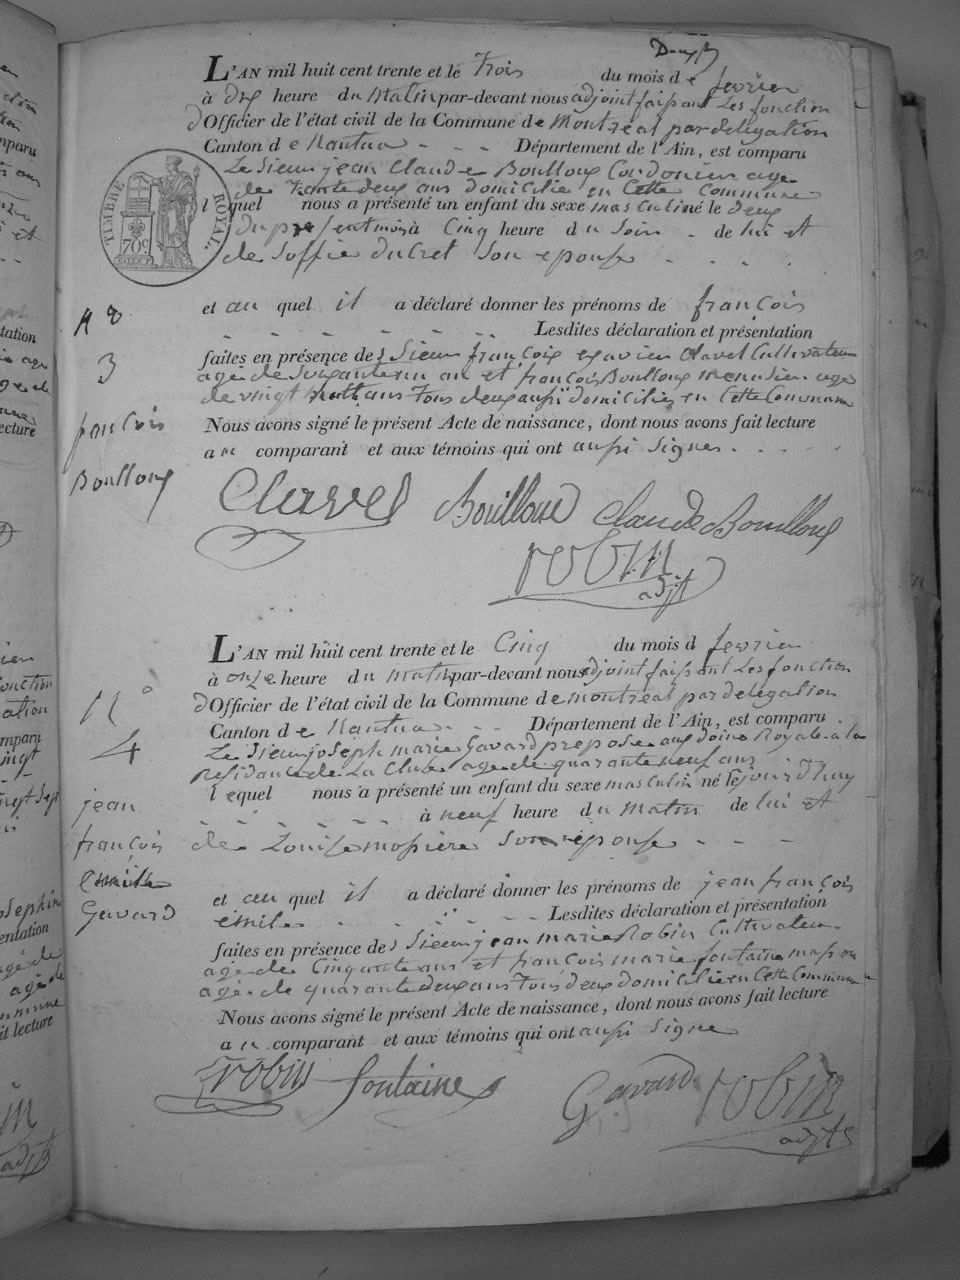 L'AN mil huit cent trente et le trois du mois de fevrier
à dix heure du Matin par-devant nous adjoint faisant Les fonction
d'Officier de l'état civil de la Commune de Montreal par delegation
Canton de Nantua - - - Département de l'Ain, est comparu
Le Sieur jean Claude Boulloux Cordonier age
de trante deux ans domicilié en Cette Commune
lequel nous a présenté un enfant du sexe masculin né le deux
du present mois à Cinq heure du Soir - de lui et
de Soffie ducret Son epouse - - - -
et au quel il a déclaré donner les prénoms de françois
- - - - - - - Lesdites déclaration et présentation
faites en présence des Sieur françois exavier Clavel Cultivateur
agé de Soixante un an et françois Boulloux menusier age
de vingt huit ans tous deux aussi domicilies en Cette Commune
Nous avons signé le présent Acte de naissance, dont nous avons fait lecture
au comparant et aux témoins qui ont aussi Signes - - - - -
N°
3
francois
Boulloux
Clavel Boulloud Claude Boulloux
robin
adjt
L'AN mil huit cent trente et le Cinq du mois d fevrier
à onze heure du matin par-devant nous adjoint faisant Les fonction
d'Officier de l'état civil de la Commune de montreal par delegation
Canton de Nantua - - Département de l'Ain, est comparu
Le Sieur joseph marie Gavard preposé aux doine Royale a la
Residance de La Cluse agé de quarante neuf ans
lequel nous a présenté un enfant du sexe masculin né le jourd'huy
- - - - - - à neuf heure du matin de lui et
de Louise mosiere Son epouse - - - -
et au quel il a déclaré donner les prénoms de jean françois
émile - - - - - - Lesdites déclaration et présentation
faites en présence des Sieur jean marie Robin Cultivateur
agé de Cinquante ans et françois marie fontaine masson
agé de quarante deux ans tous deux domicilié en Cette Commune
Nous avons signé le présent Acte de naissance, dont nous avons fait lecture
au comparant et aux témoins qui ont aussi Signe
N°
4
jean
françois
Emile
Gavard
robin fontaine Gavard robin
adjt
TIMBRE ROYAL
70c